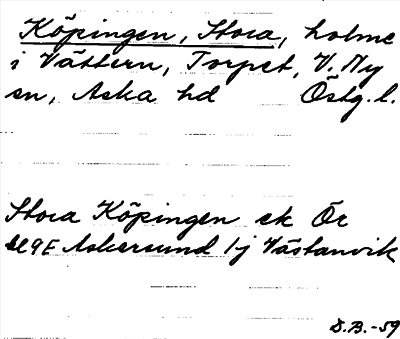 Köpingen, Stora, holme
i Vättern, Torpet, V. Ny
sn, Aska hd Östg. l.
Stora Köpingen ek Ör
bl 9E Askersund 1j Västanvik
S.B.-59